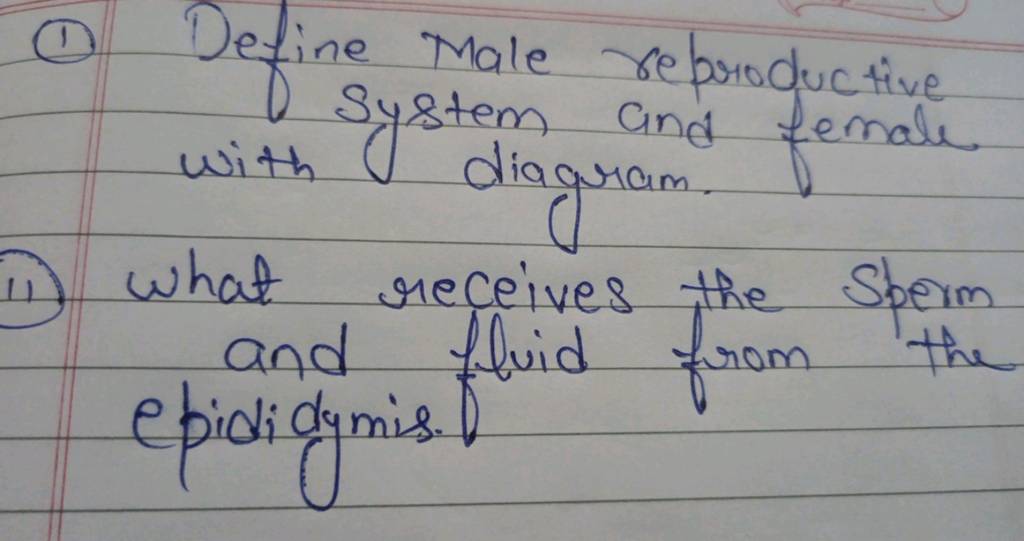 ① Define Male reproductive
system and female
with diagram.
11 what receives the sperm
and fluid from the
epididymis.